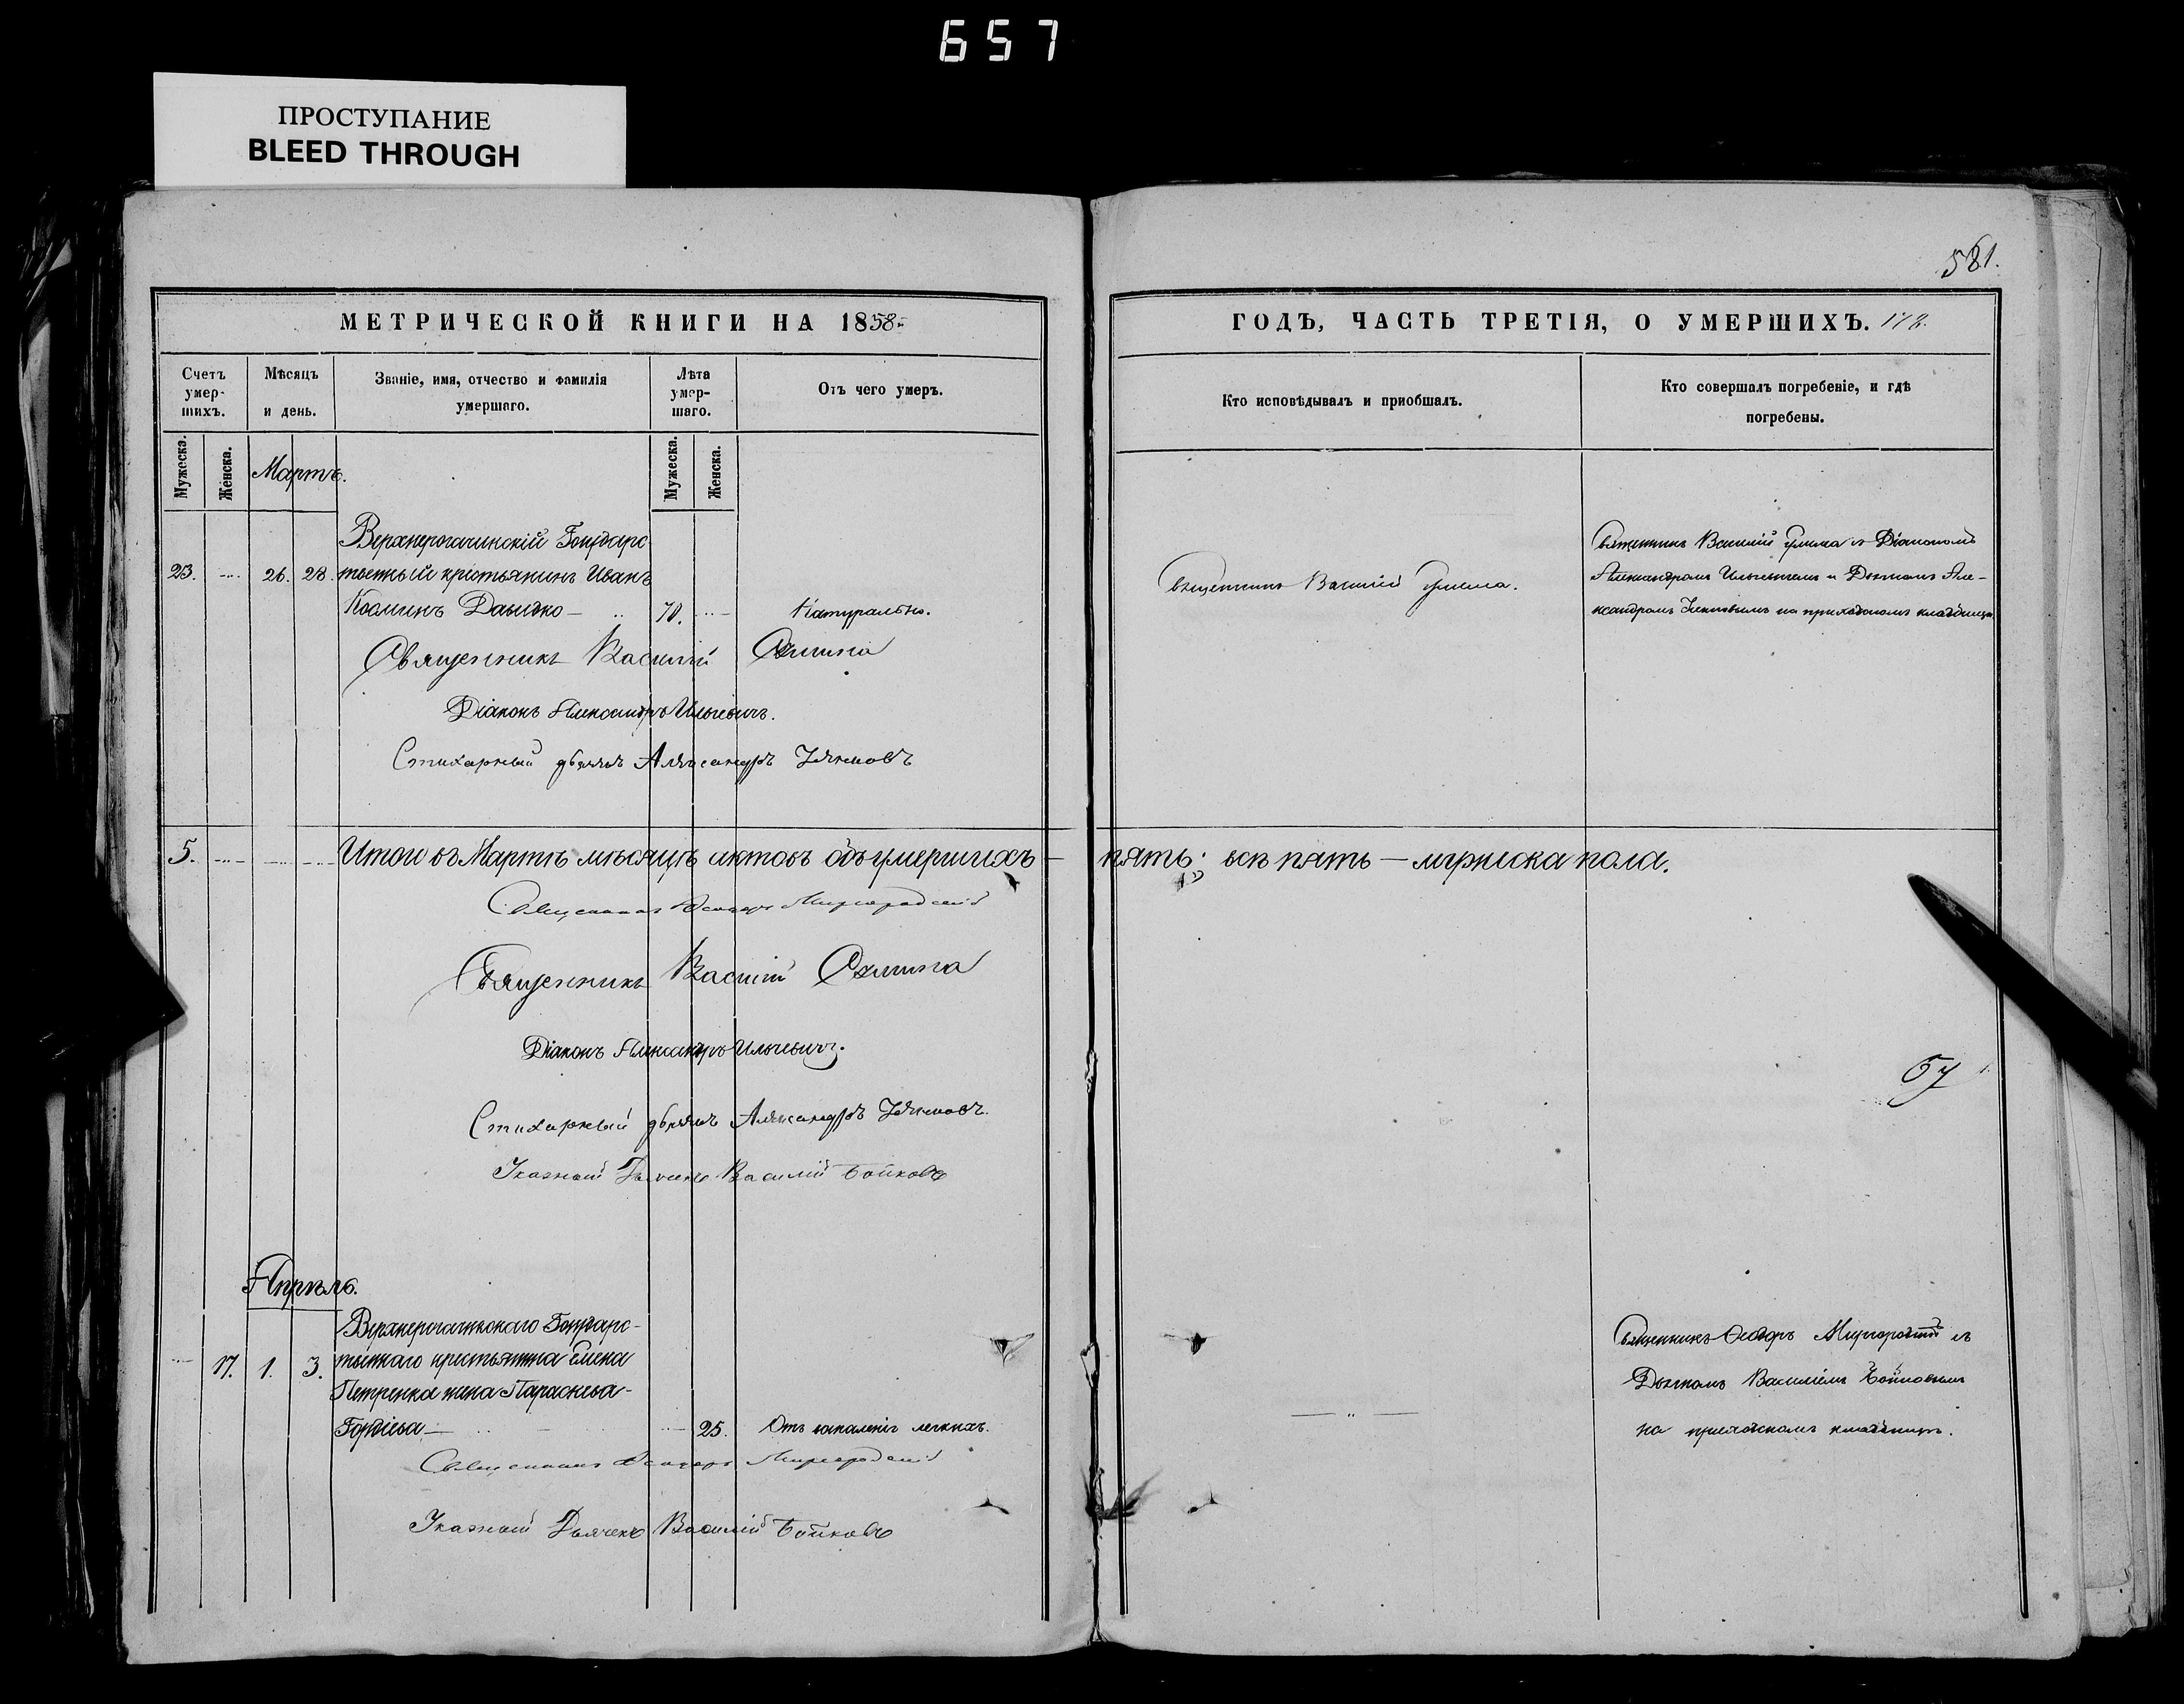 657
ПРОСТУПАНИЕ
BLEED THROUGH
581.
МЕТРИЧЕСКОЙ КНИГИ НА 1858
ГОДЪ, ЧАСТЬ ТРЕТІЯ, О УМЕРШИХЪ.
Счетъ умер-шихъ.
Мужеска.
Женска.
Мѣсяцъ и день.
Званіе, имя, отчество и фамилія умершаго.
Лѣта умер-шаго.
Мужеска.
Женска.
Отъ чего умеръ.
Кто исповѣдывалъ и приобщалъ.
Кто совершалъ погребеніе, и гдѣ погребены.
Мартъ.
Верхнерогачинскій Государс-
23. 26. 28. твенный крестьянинъ Иванъ
Козминъ Давидко 70. Натурально.
Священникъ Василій
Священникъ Василій и Діакономъ
Александромъ Ильчевичемъ и Дьячкомъ Але-
ксандромъ на приходскомъ кладбищѣ
Священникъ Василій
Діаконъ Александръ Ильчевичъ.
Стихарный дьячокъ Александръ
5. Итого въ Мартѣ мѣсяцѣ актовъ объ умершихъ — пять; всѣ пять — мужеска пола.
Священникъ Ѳеодоръ Миргородскій
Священникъ Василій
Діаконъ Александръ Ильчевичъ.
Стихарный дьячокъ Александръ
Указный Дьячекъ Василій Бойковъ
57
Апрѣль.
Верхнерогачинскаго Государс-
17. 1. 3. твеннаго крестьянина
Петренка жена Параскева
Гордіева 25. Отъ воспаленія легкихъ.
Священникъ Ѳеодоръ Миргородскій съ
Дьячкомъ Василіемъ Бойковымъ
на приходскомъ кладбищѣ.
Священникъ Ѳеодоръ Миргородскій
Указный Дьячекъ Василій Бойковъ